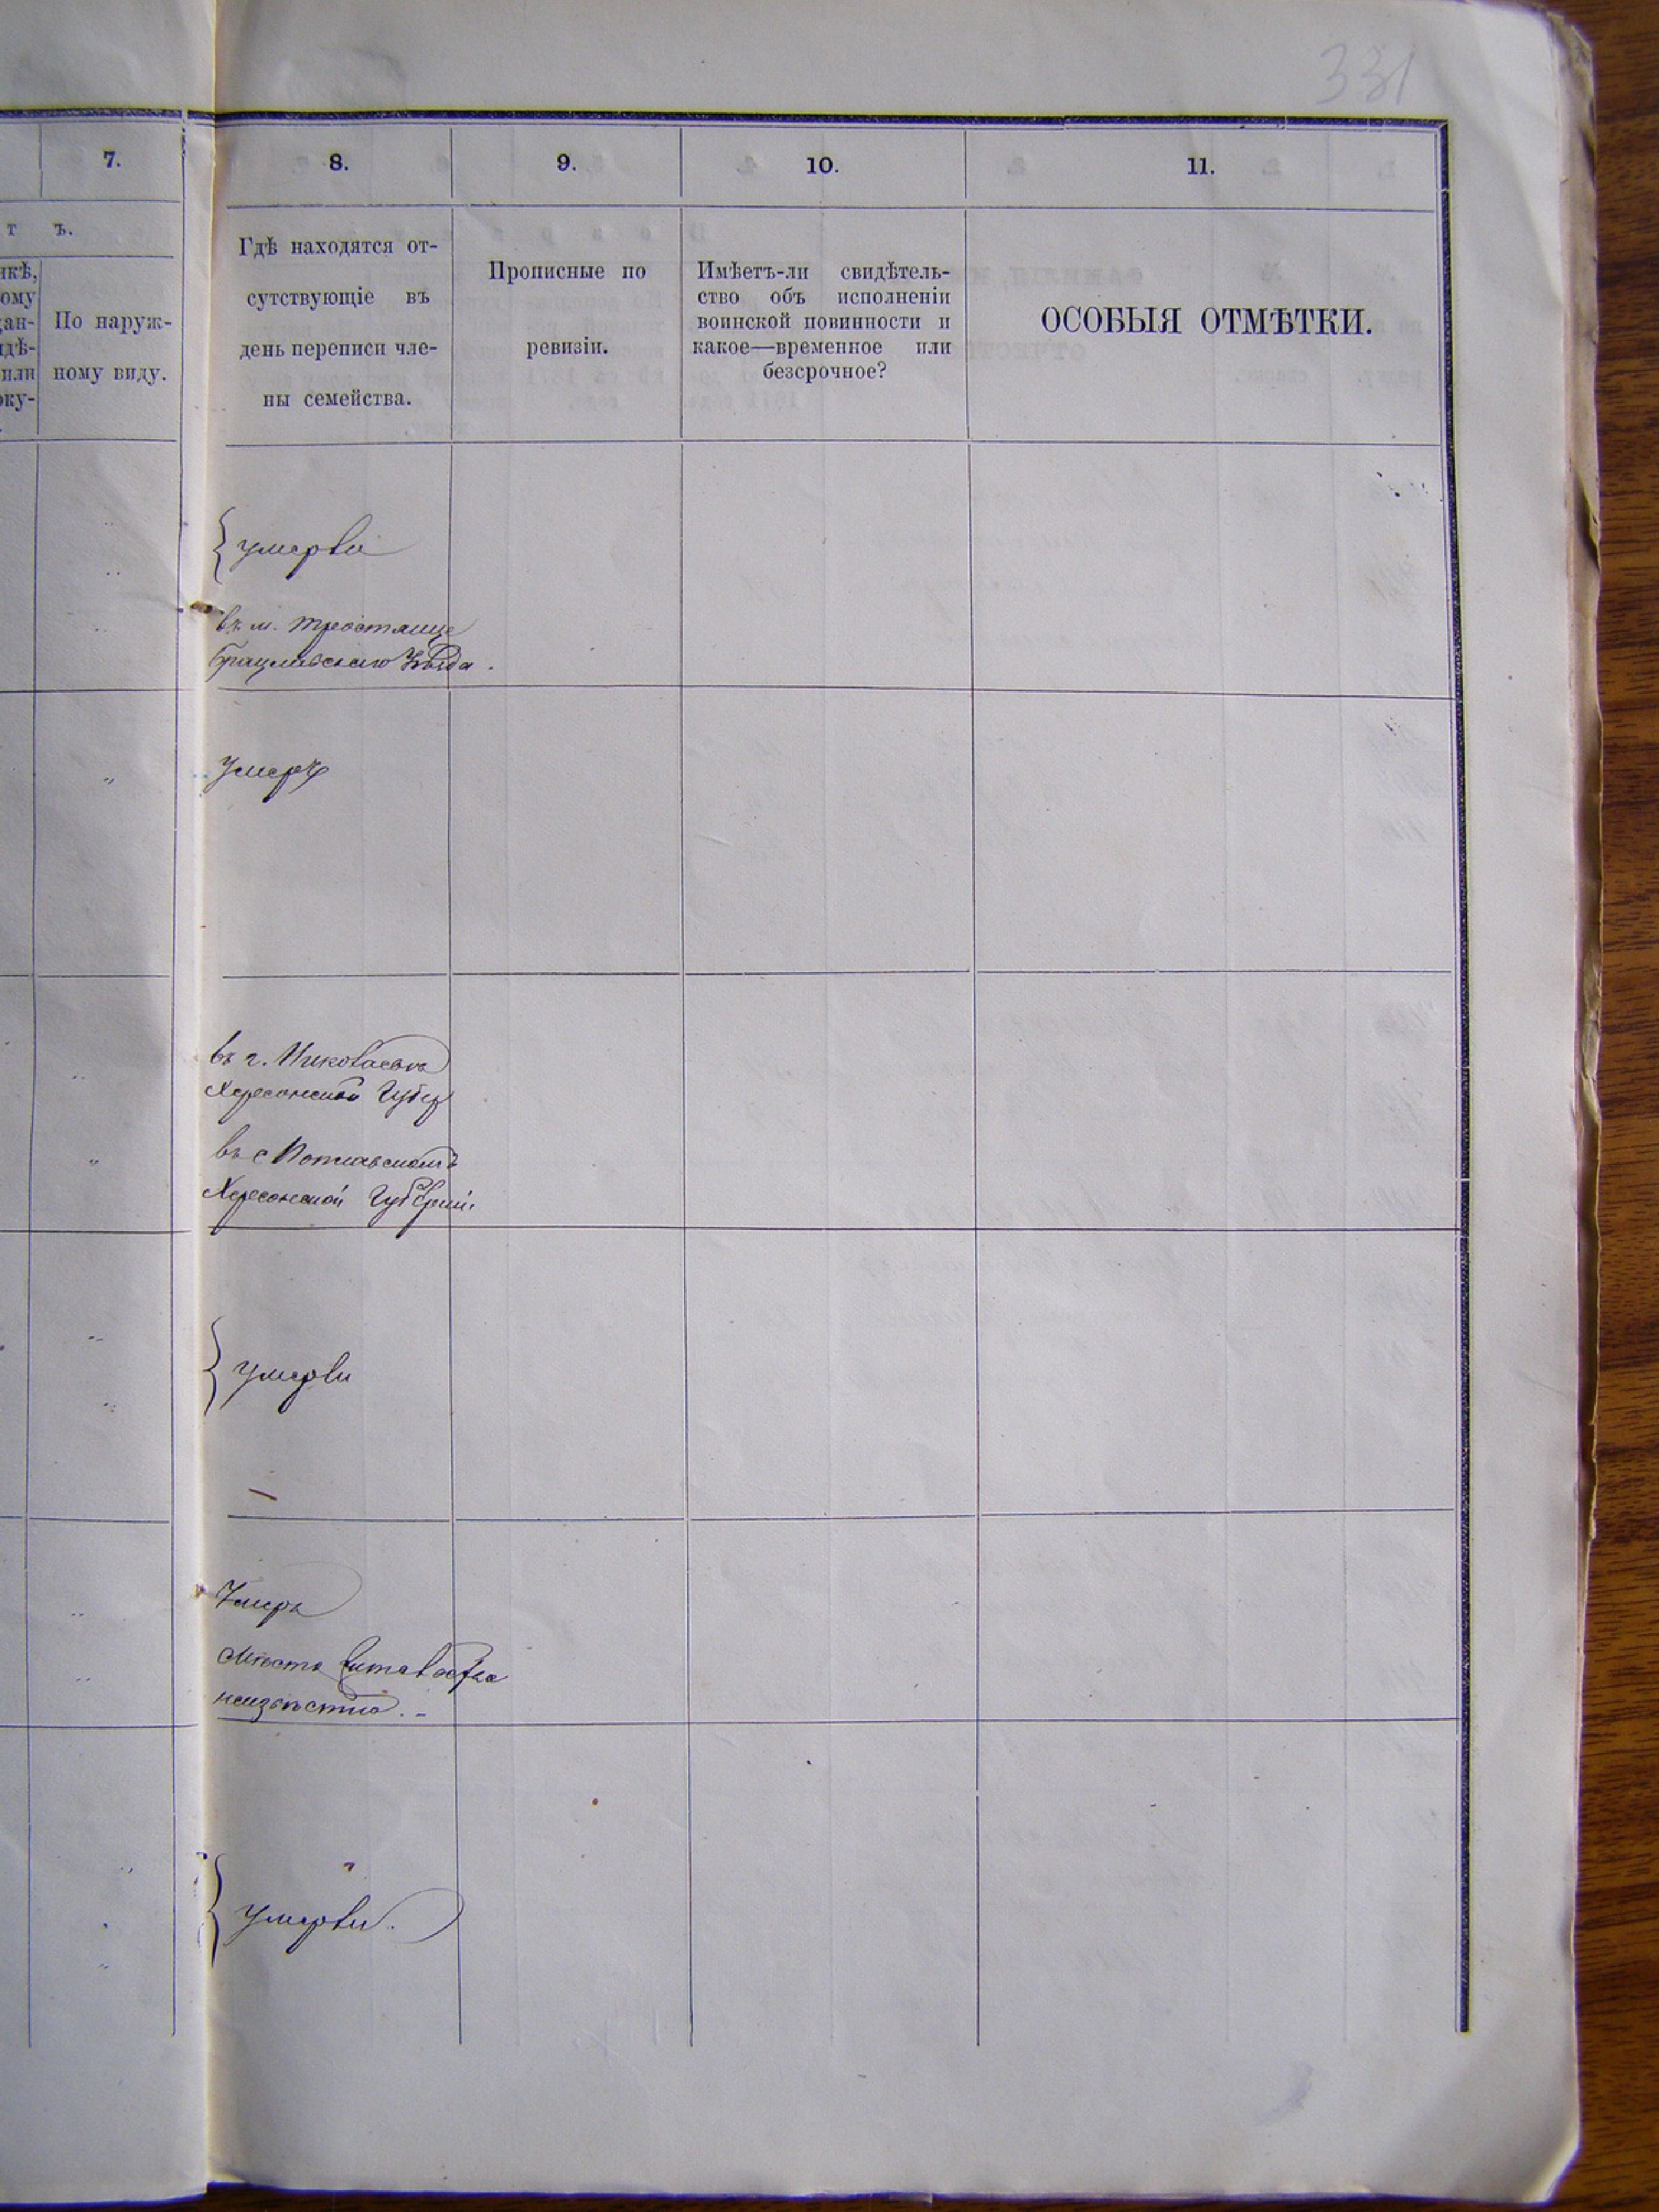 331
7.
8.
9.
10.
11.
т ъ.
По наруж-
ному виду.
Гдѣ находятся от-
сутствующіе въ
день переписи чле-
ны семейства.
Прописные по
ревизіи.
Имѣетъ-ли свидѣтель-
ство объ исполненіи
воинской повинности и
какое—временное или
безсрочное?
ОСОБЫЯ ОТМѢТКИ.
умерли
въ м. Тростянце
Брацлавскаго Уѣзда.
Умеръ
въ г. Николаевѣ
Херсонской Губер
въ с
Херсонской Губерніи.
умерли
Умеръ
Мѣсто жительства
неизвѣстно. -
умерли.